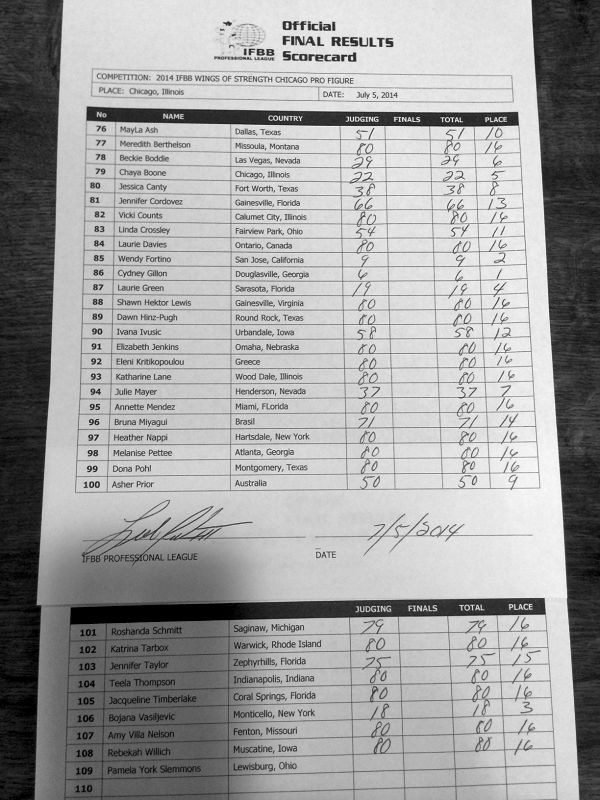 Official
FINAL RESULTS
Scorecard
IFBB
PROFESSIONAL LEAGUE
COMPETITION: 2014 IFBB WINGS OF STRENGTH CHICAGO PRO FIGURE
PLACE: Chicago, Illinois DATE: July 5, 2014
No NAME COUNTRY JUDGING FINALS TOTAL PLACE
76 MayLa Ash Dallas, Texas 51 51 10
77 Meredith Berthelson Missoula, Montana 80 80 16
78 Beckie Boddie Las Vegas, Nevada 29 29 6
79 Chaya Boone Chicago, Illinois 22 22 5
80 Jessica Canty Fort Worth, Texas 38 38 8
81 Jennifer Cordovez Gainesville, Florida 66 66 13
82 Vicki Counts Calumet City, Illinois 80 80 16
83 Linda Crossley Fairview Park, Ohio 54 54 11
84 Laurie Davies Ontario, Canada 80 80 16
85 Wendy Fortino San Jose, California 9 9 2
86 Cydney Gillon Douglasville, Georgia 6 6 1
87 Laurie Green Sarasota, Florida 19 19 4
88 Shawn Hektor Lewis Gainesville, Virginia 80 80 16
89 Dawn Hinz-Pugh Round Rock, Texas 80 80 16
90 Ivana Ivusic Urbandale, Iowa 58 58 12
91 Elizabeth Jenkins Omaha, Nebraska 80 80 16
92 Eleni Kritikopoulou Greece 80 80 16
93 Katharine Lane Wood Dale, Illinois 80 80 16
94 Julie Mayer Henderson, Nevada 37 37 7
95 Annette Mendez Miami, FLorida 80 80 16
96 Bruna Miyagui Brasil 71 71 14
97 Heather Nappi Hartsdale, New York 80 80 16
98 Melanise Pettee Atlanta, Georgia 80 80 16
99 Dona Pohl Montgomery, Texas 80 80 16
100 Asher Prior Australia 50 50 9
7/5/2014
IFBB PROFESSIONAL LEAGUE DATE
JUDGING FINALS TOTAL PLACE
101 Roshanda Schmitt Saginaw, Michigan 79 79 16
102 Katrina Tarbox Warwick, Rhode Island 80 80 16
103 Jennifer Taylor Zephyrhills, Florida 75 75 15
104 Teela Thompson Indianapolis, Indiana 80 80 16
105 Jacqueline Timberlake Coral Springs, Florida 80 80 16
106 Bojana Vasiljevic Monticello, New York 18 18 3
107 Amy Villa Nelson Fenton, Missouri 80 80 16
108 Rebekah Willich Muscatine, Iowa 80 80 16
109 Pamela York Slemmons Lewisburg, Ohio
110